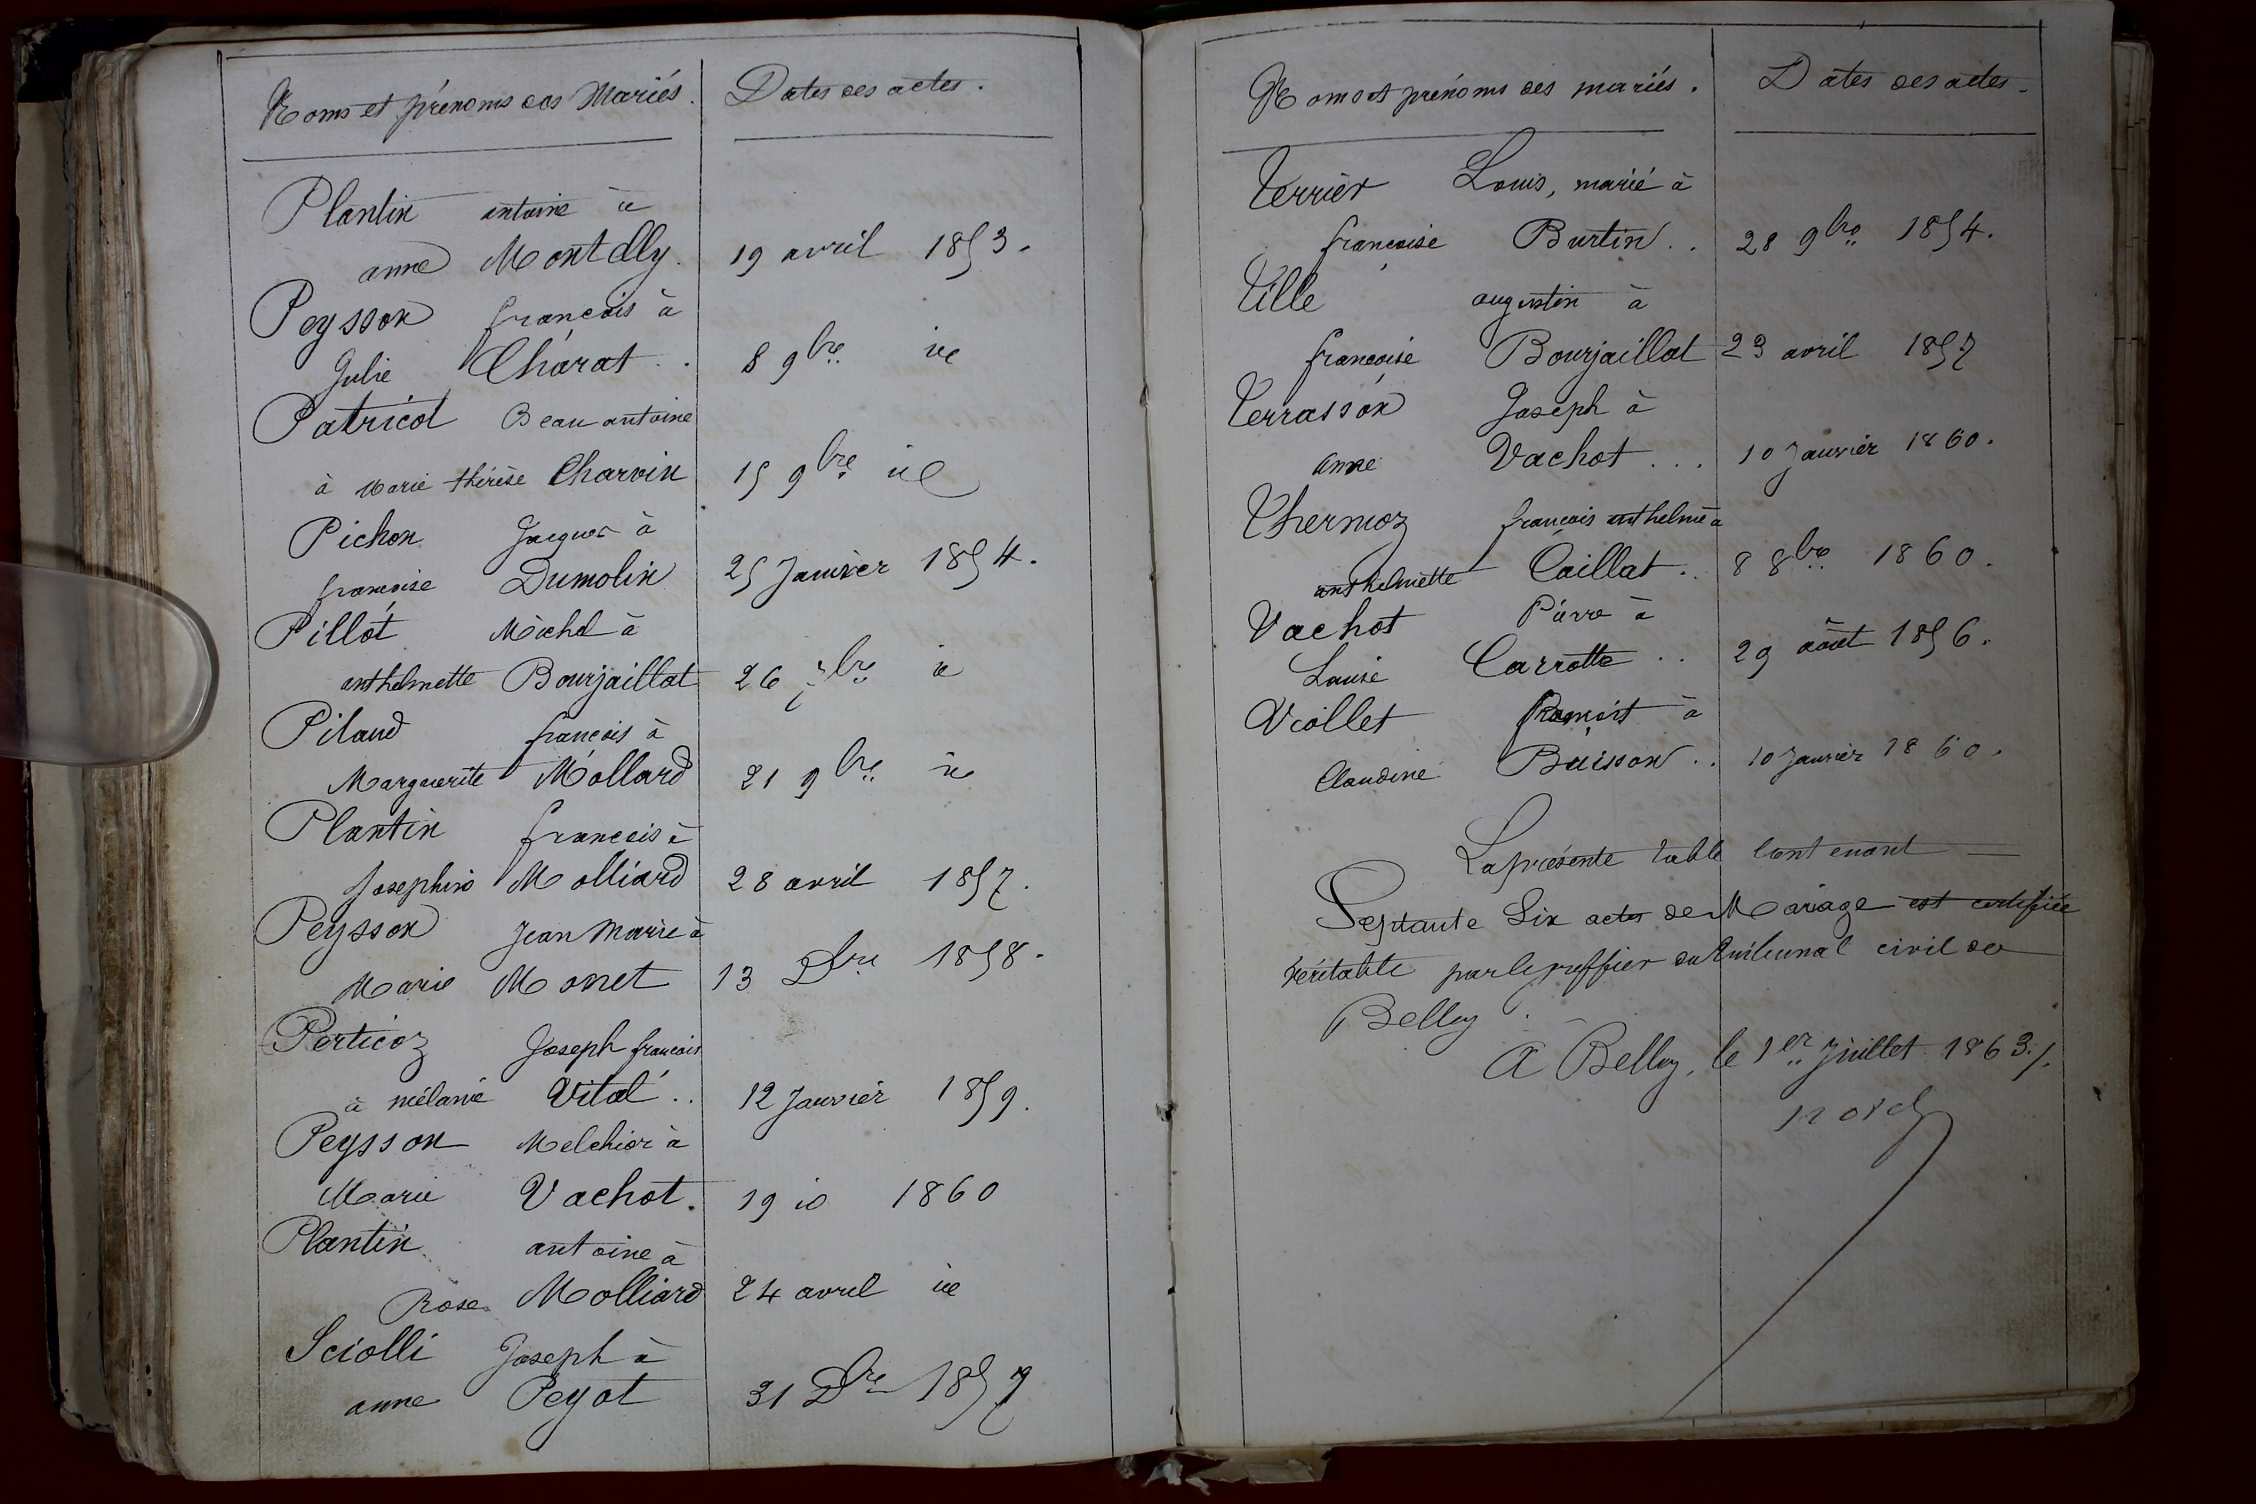 Noms et prénoms des Mariés. Dates des actes.
Plantin antoine à
anne Montelly. 19 avril 1853.
Peysson françois à
Julie Charat .. 8 9bre id
Patricot Beau antoine
à Marie thérèse Charvin 15 9bre id
Pichon Jacques à
françoise Dumolin 25 Janvier 1854.
Pillot Michel à
anthelmette Bourjaillat 26 7bre id
Pilaud françois à
Marguerite Mollard 21 9bre id
Plantin françois à
Josephine Molliard 28 avril 1857.
Peysson Jean Marie à
Marie Monet 13 Dbre 1858.
Perticoz Joseph françois
à mélanie Vital .. 12 Janvier 1859.
Peysson Melchior à
Marie Vachot. 19 id 1860
Plantin antoine à
Rose Molliard 24 avril id
Sciolli Joseph à
anne Peyot 31 Dbre 1857
Noms et prénoms des mariés. Dates des actes.
Verrier Louis, marié à
françoise Burtin .. 28 9bre 1854.
Ville augustin à
françoise Bourjaillat 23 avril 1857
Verrasson Joseph à
anne Vachot ... 10 Janvier 1860.
Thermoz françois anthelme à
anthelmette Caillat .. 8 8bre 1860.
Vachot Pierre à
Louise Carrotte .. 29 août 1856.
Viollet à
Claudine Buisson .. 10 Janvier 1860.
La présente table contenant
Septante Six actes de Mariage est certifiée
véritable par le greffier du tribunal civil de
Belley.
A Belley, le 1er Juillet 1863./.